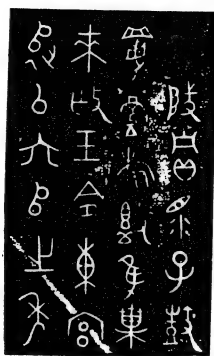 貯眔子鼓
鑄旅簋隹巢
來王令東宮
追以六𠂤之年